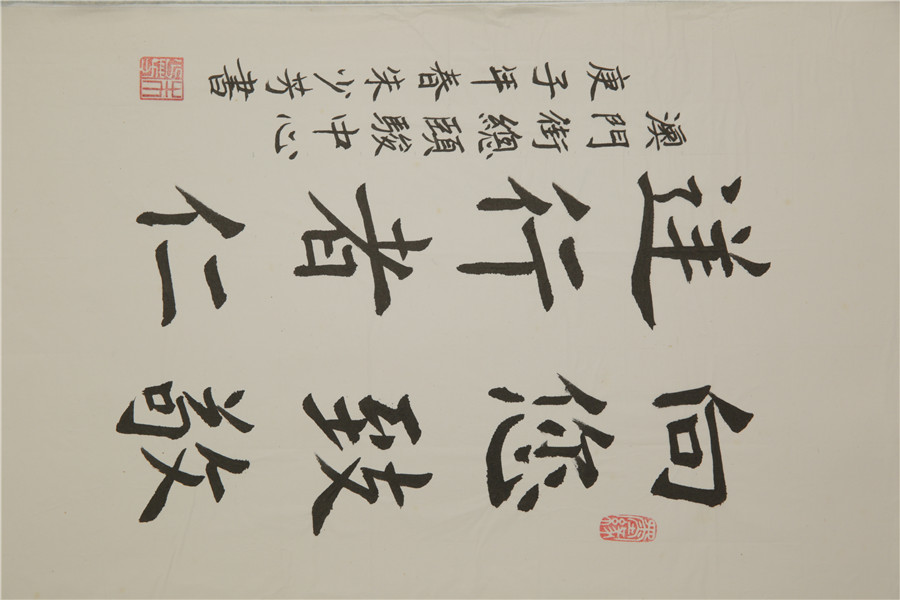 向您致敬
逆行者仁
澳門街總頤駿中心
庚子年春朱少芳書